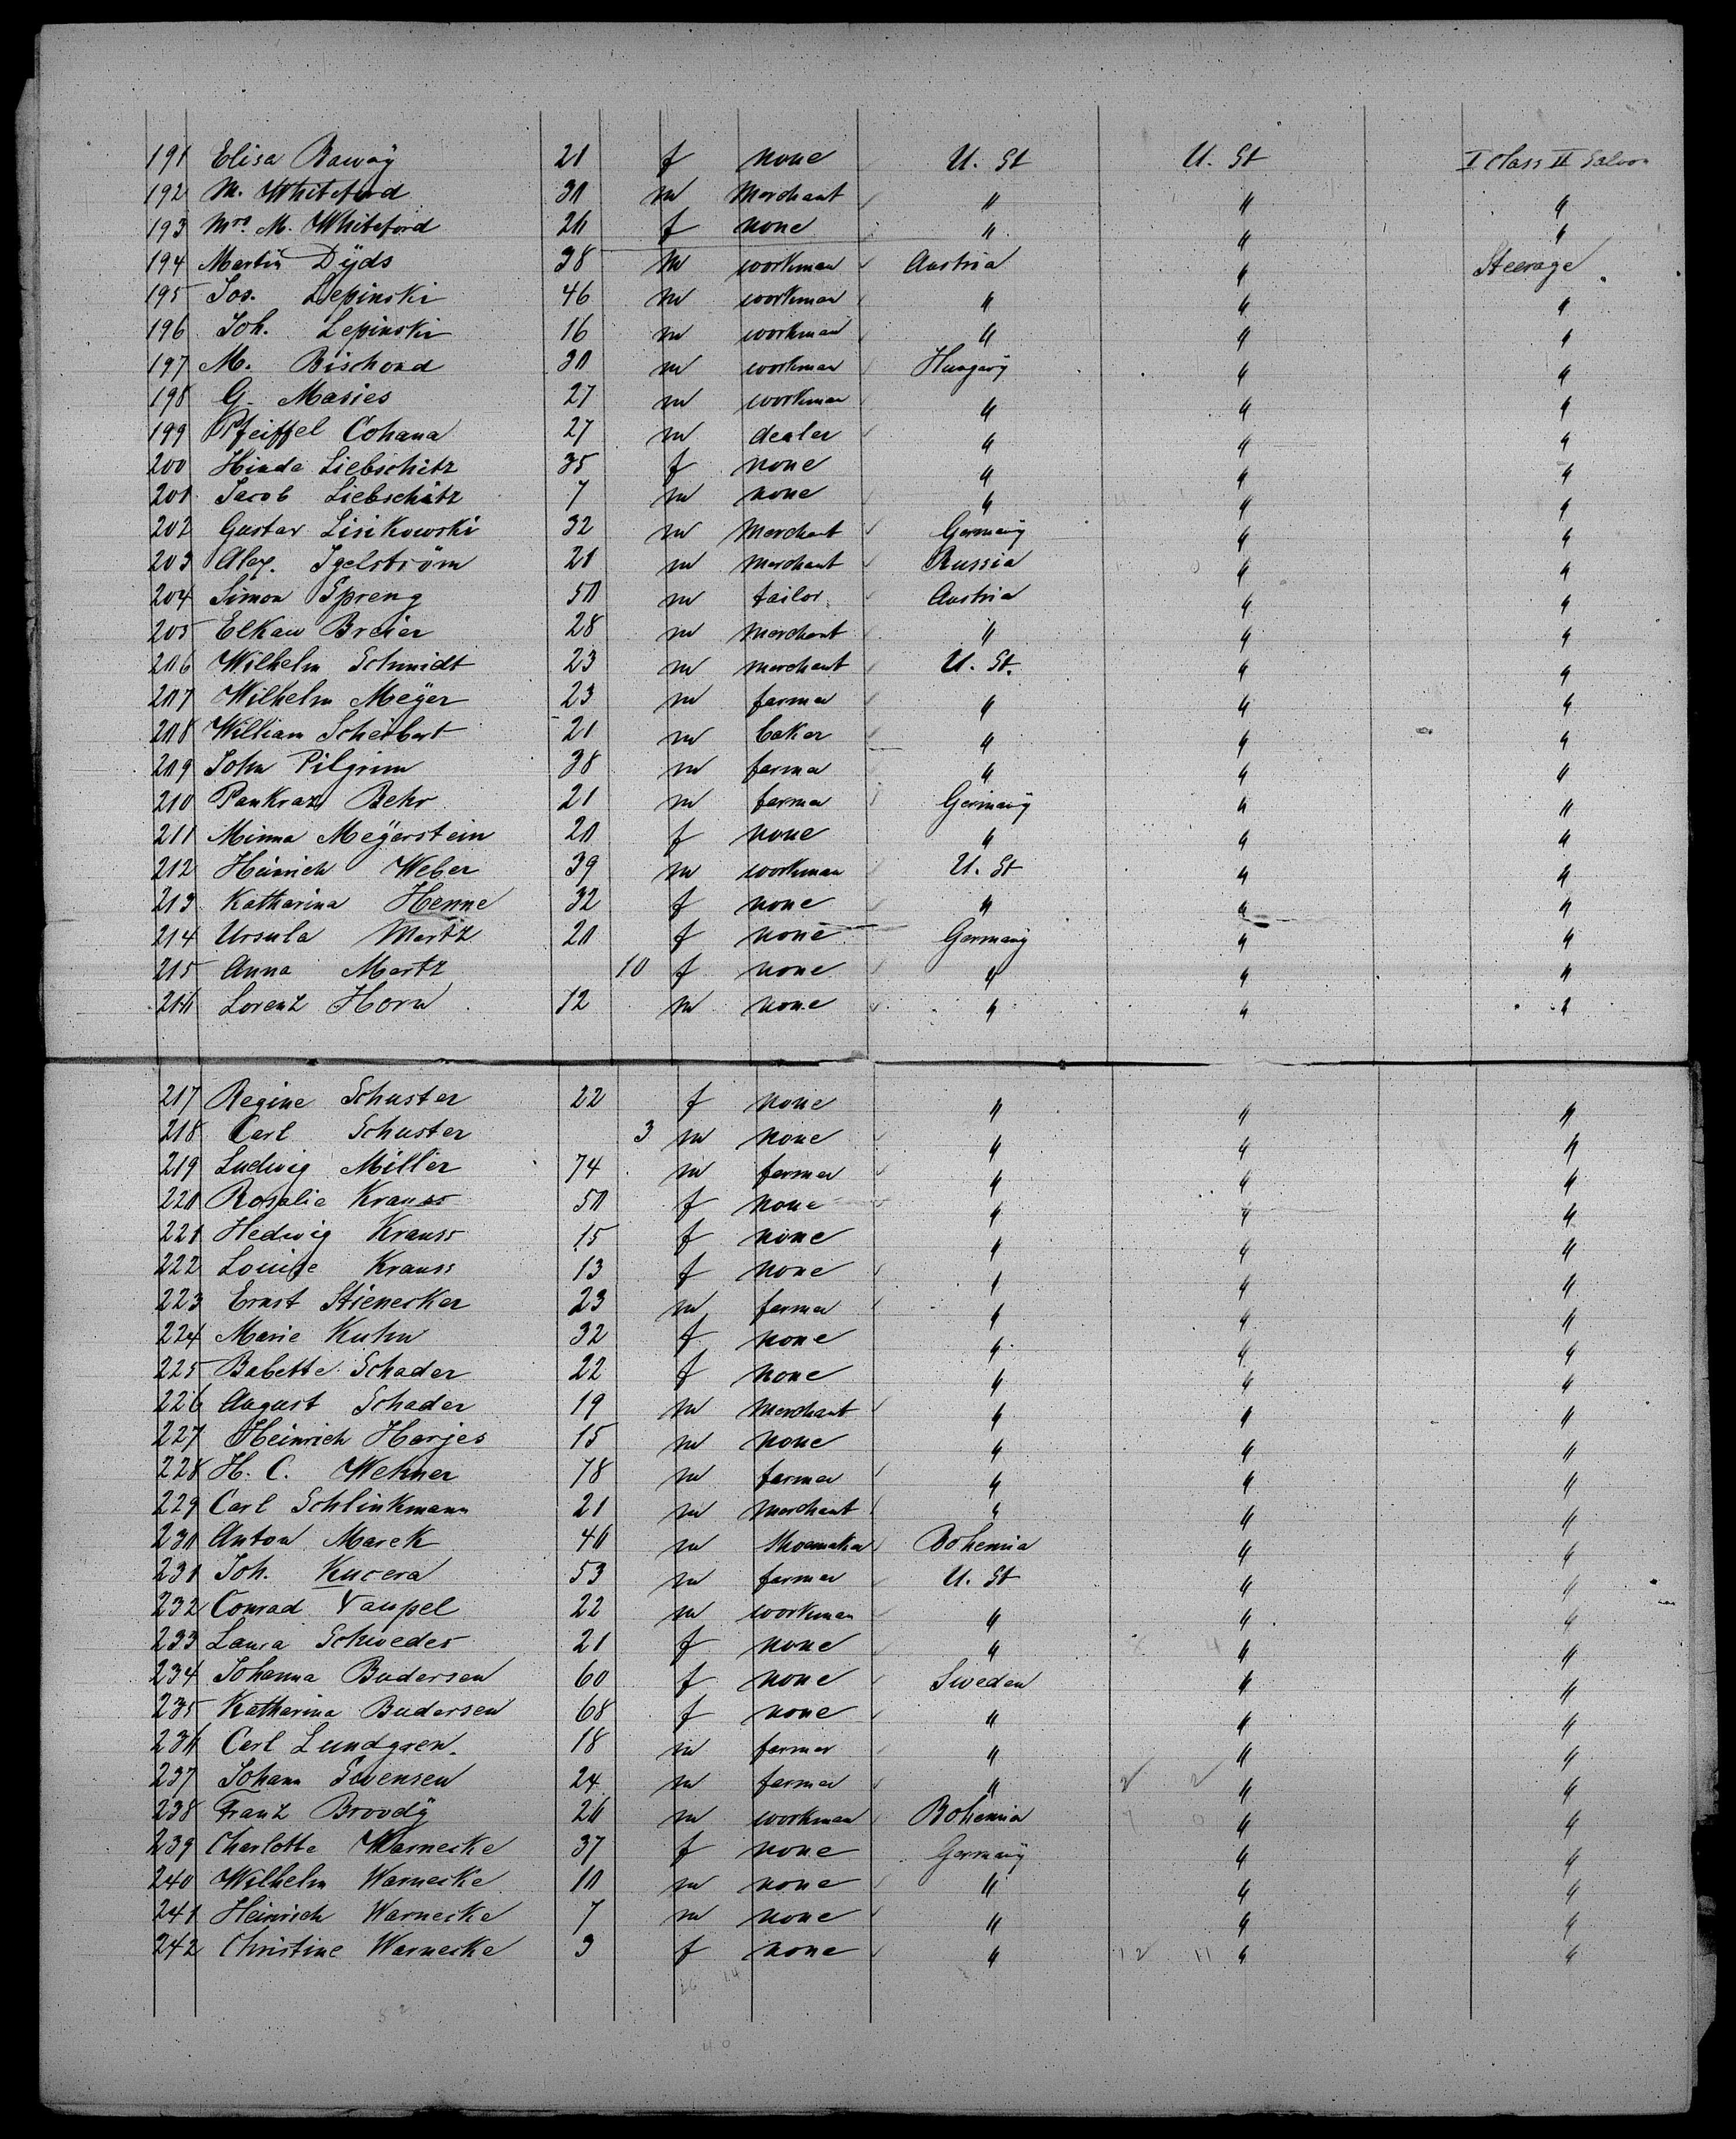 191 Elisa Baway 21 f none U. St U. St I Class II Saloon
192 M. Whiteford 30 m Merchant " " "
193 Mrs. M. Whiteford 20 f none " " "
194 Martin Dyds 38 m workman Austria " Steerage
195 Jos. Lepinski 46 m workman " " "
196 Joh. Lepinski 16 m workman " " "
197 M. Bischond 30 m workman Hungary " "
198 G. Masies 27 m workman " " "
199 Pfeiffel Cohana 27 m dealer " " "
200 Hinda Liebschitz 35 f none " " "
201 Jacob Liebschitz 7 m none " " "
202 Gustav Lisikowski 32 m Merchant Germany " "
203 Alex. Igelström 21 m merchant Russia " "
204 Simon Spreng 50 m tailor Austria " "
205 Elkan Breier 28 m Merchant " " "
206 Wilhelm Schmidt 23 m merchant U. St. " "
207 Wilhelm Meyer 23 m farmer " " "
208 William Scheibert 21 m baker " " "
209 John Pilgrim 38 m farmer " " "
210 Pankraz Behr 21 m farmer Germany " "
211 Minna Meyerstein 20 f none " " "
212 Heinrich Weber 39 m workman U. St " "
213 Katharina Henne 32 f none " " "
214 Ursula Martz 20 f none Germany " "
215 Anna Martz 10 f none " " "
216 Lorenz Horn 12 m none " " "
217 Regine Schuster 22 f none " " "
218 Carl Schuster 3 m none " " "
219 Ludwig Miller 74 m farmer " " "
220 Rosalie Krauss 50 f none " " "
221 Hedwig Krauss 15 f none " " "
222 Louise Krauss 13 f none " " "
223 Ernst Stienecker 23 m farmer " " "
224 Marie Kuhn 32 f none " " "
225 Babette Schader 22 f none " " "
226 August Schader 19 m Merchant " " "
227 Heinrich Harjes 15 m none " " "
228 H. C. Wehner 78 m farmer " " "
229 Carl Schlinkmann 21 m merchant " " "
230 Anton Marek 40 m Shoemaker Bohemia " "
231 Joh. Kucera 53 m farmer U. St " "
232 Conrad Vaupel 22 m workman " " "
233 Laura Schwedes 21 f none " " "
234 Johanna Budersen 60 f none Sweden " "
235 Katharina Budersen 68 f none " " "
236 Carl Lundgren. 18 m farmer " " "
237 Johann Svensen 24 m farmer " " "
238 Franz Brovdy 20 m workman Bohemia " "
239 Charlotte Warnecke 37 f none Germany " "
240 Wilhelm Warnecke 10 m none " " "
241 Heinrich Warnecke 7 m none " " "
242 Christine Warnecke 3 f none " 12 11 " "
16 14
82
40